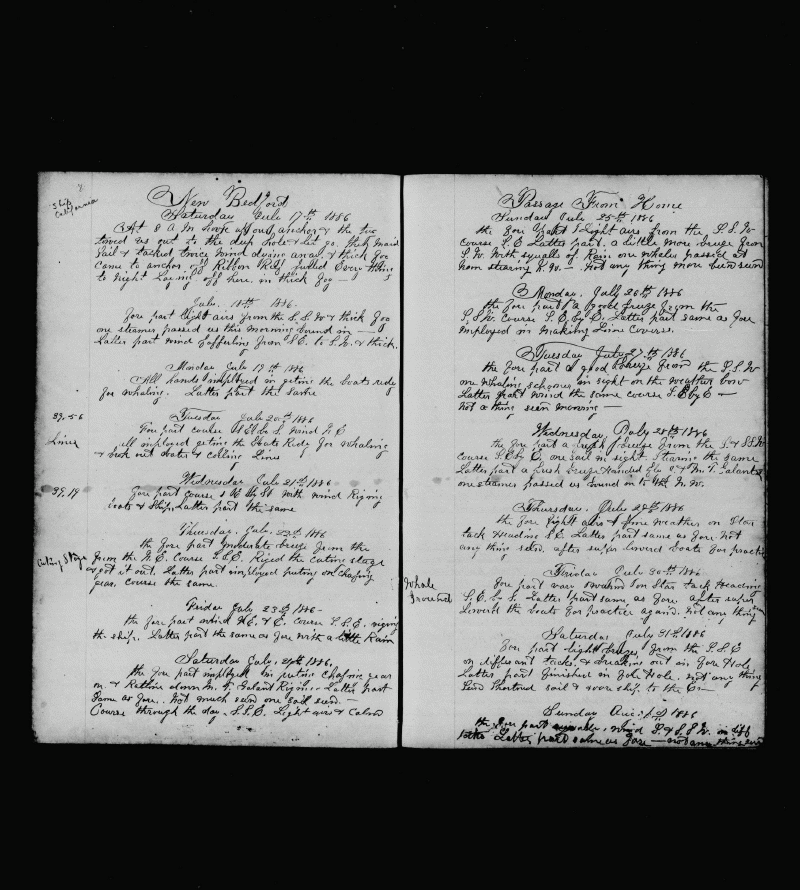 Ship
California
New Bedford
Saturday July 17th 1886
At 8 A M hove up our anchor & the two
towed us out to the deep hole & let go. Set Main
Sail & tacked twice wind dying away & thick fog
came to anchor off Ribbon Reef furled Every thing
to night Laying off here in thick fog
July 18th 1886
fore part light airs from the S.S.W & thick fog
one steamer passed us this morning bound in
Latter part wind from S.E. to S.W. & thick.
Monday July 19th 1886
All hands imployed in geting the boats redy
for whaling. Latter part the same
39.56
Lines
Tuesday July 20th 1886
fore part course wind N E
all imployed geting the Boats Redy for whaling
& brok out water & coiling Lines
39.19
Wednesday July 21st 1886
fore part course with wind Riging
boats & Ship. Latter part the same
Cuting Stage
Thursday July 22nd 1886
the fore part moderate breze from the
from the N.E. Course S.S.E. Riged the cuting stage
& got it out. Latter part imployed puting on chafing
gear. course the same.
Friday July 23rd 1886
the fore part wind N.E. & E. course S.S.E. riging
the ship. Latter part the same as fore with a little Rain
Saturday July 24th 1886
the fore part imployed in puting chafing gear
on & Ratline down M. T. Galant Riging. Latter part
Same as fore. Not much seen one sail seen
Course through the day S.S.E. Light airs & Calms
Passage From Home
Sunday July 25th 1886
the fore part Light airs from the S.S.W
course S.E Latter part a little more breeze from
S.W. With squalls of Rain one whaler passed us
steering N.W. Not any thing more been seen
Monday. July 26th 1886
the fore part a good breeze from the
S.S.W. Course S.E. by E. Latter part same as fore
imployed in making Line Covers.
Tuesday July 27th 1886
the fore part a good breeze from the S.S.W
one whaling schoner in sight on the weather bow
Latter part wind the same course S.E by E
Not a thing seen moreing
Wednesday July 28th 1886
the fore part a fresh breeze from the S. & S.S.W.
course S E by E. one sail in sight Stearing the same
Latter part a fresh breeze Handed fli & M. T. Galants
one steamer passed us bound on to the N.W.
Thursday July 29th 1886
the fore light airs & fine weather on Star
tack Heading S.E. Latter part same as fore Not
any thing seen. after super lowered boats for practice
Whale
Ground
Friday July 30th 1886
fore part ware round on Star tack Heading
S.E. by S. Latter part same as fore. after super
Lowerd the boats for practice again. not any thing
Saturday July 31st 1886
fore part light breze from the S.S.E
on differant tacks & breaking out in fore Hole
Latter part finished in fore Hole. not any thing
Seen Shortend sail & wore ship to the E
Sunday Aug. 1st 1886
the fore part wind S. & S.S.W. on diff
tacks Latter part same as fore not any thing seen